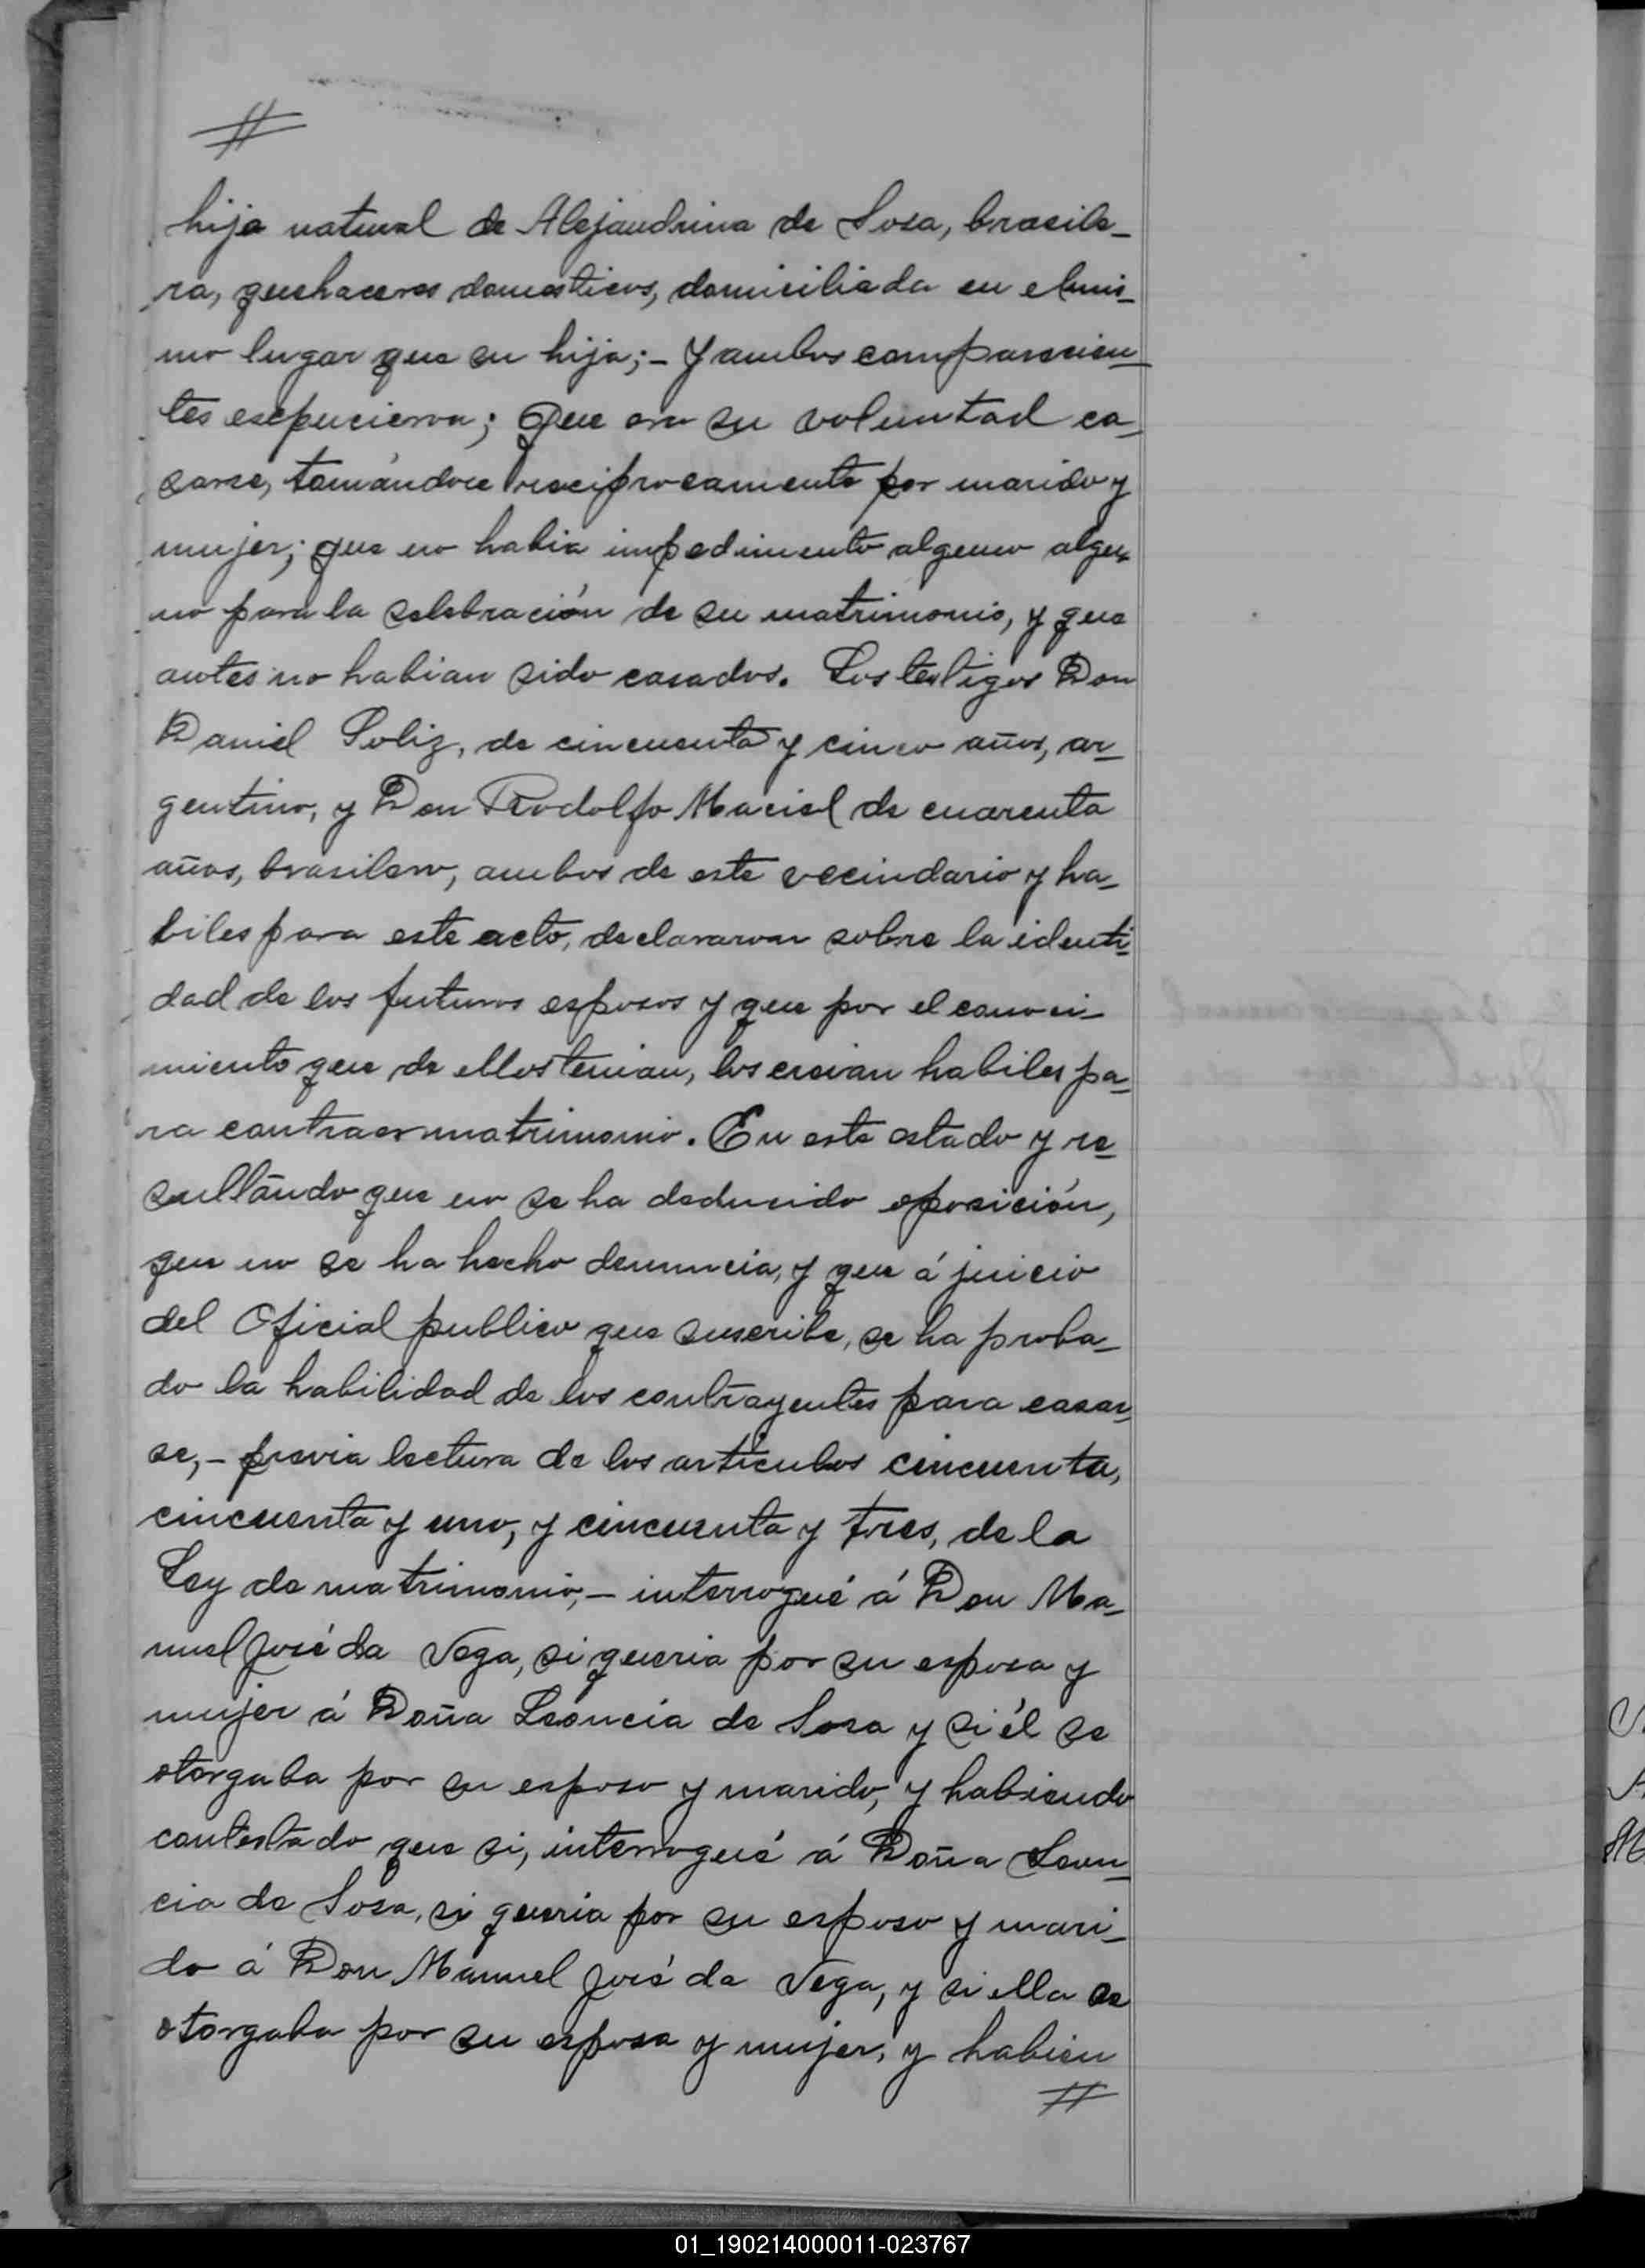 #
hija natural de Alejandrina de Sosa, brasile-
ra, quehaceres domesticos, domiciliada en el mis-
mo lugar que su hija;- Y ambos comparecien-
tes espucieron; Que era su voluntad ca-
sarse, tomándose reciprocamente por marido y
mujer; que no habia impedimento alguno algu-
no para la selebración de su matrimonio, y que
antes no habian sido casados. Los testigos Don
Daniel Soliz, de cincuenta y cinco años, ar-
gentino, y Don Rodolfo Maciel de cuarenta
años, brasilero, ambos de este vecindario y ha-
biles para este acto, declararon sobre la identi-
dad de los futuros esposos y que por el conoci-
miento que de ellos tenian, los creian habiles pa-
ra contraer matrimonio. En este estado y re-
sultando que no se ha deducido oposición,
que no se ha hecho denuncia, y que á juicio
del Oficial publico que suscribe, se ha proba-
do la habilidad de los contrayentes para casar-
se,- previa lectura de los artículos cincuenta,
cincuenta y uno, y cincuenta y tres, de la
Ley de matrimonio,- interrogué á Don Ma-
nuel José da Vega, si queria por su esposa y
mujer á Doña Leoncia de Sosa y si él se
otorgaba por su esposo y marido, y habiendo
contestado que si, interrogué á Doña Leon-
cia de Sosa, si queria por su esposo y mari-
do á Don Manuel José da Vega, y si ella se
otorgaba por su esposa y mujer, y habien
#
01_190214000011-023767